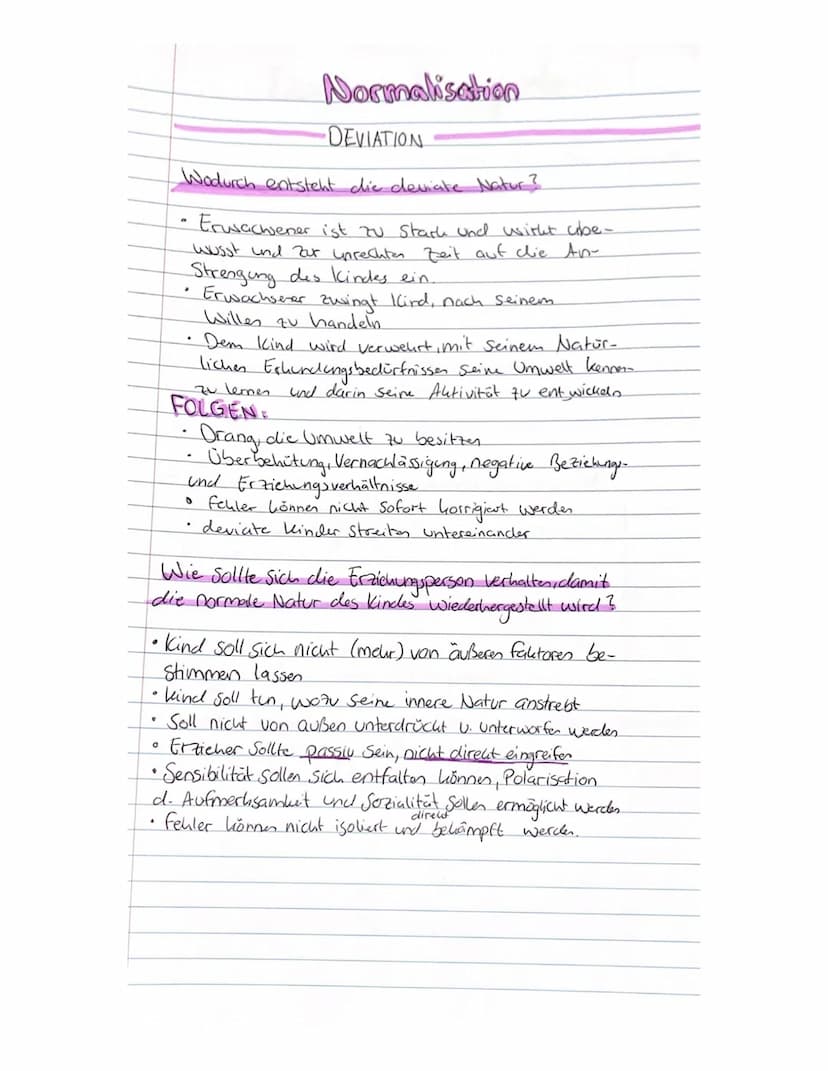 Normalisation
DEVIATION
Wodurch entsteht die deviate Natur?
• Erwachsener ist zu stark und wirkt unbe-
wusst und zur unrechten Zeit auf die An-
strengung des Kindes ein.
• Erwachsener zwingt Kind, nach seinem
Willen zu handeln
• Dem Kind wird verwehrt, mit seinem Natür-
lichen Erkundungsbedürfnissen seine Umwelt kennen-
zu lernen und darin seine Aktivität zu entwickeln
FOLGEN:
• Drang, die Umwelt zu besitzen
• Überbehütung, Vernachlässigung, negative Beziehungs-
und Erziehungsverhältnisse
• Fehler können nicht sofort korrigiert werden
• deviate Kinder streiten untereinander
Wie sollte sich die Erziehungsperson verhalten, damit
die normale Natur des Kindes wiederhergestellt wird?
• Kind soll sich nicht (mehr) von äußeren Faktoren be-
stimmen lassen
• Kind soll tun, wozu seine innere Natur anstrebt
• Soll nicht von außen unterdrückt u. unterworfen werden
• Erzieher sollte passiv sein, nicht direkt eingreifen
• Sensibilität sollen sich entfalten können, Polarisation
d. Aufmerksamkeit und Sozialität sollen ermöglicht werden
• Fehler können nicht isoliert und direkt bekämpft werden.